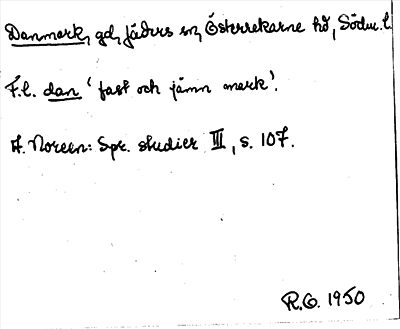 Danmark, gd, Jäders sn, Österrekarne hd, Södm. l.
F.l. dan 'fast och jämn mark'.
A. Noreen: Spr. studier III, s. 107.
R.O. 1950